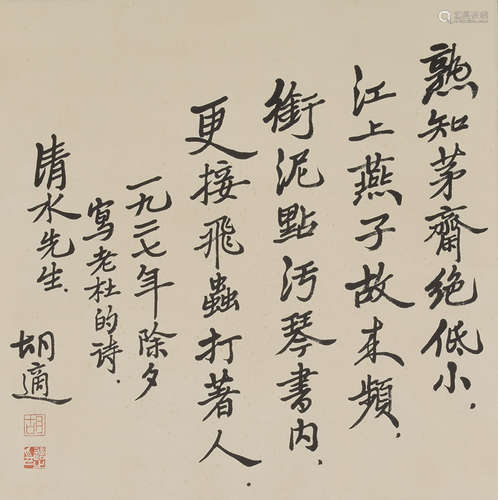 熟知茅齋絕低小.
江上燕子故来頻.
銜泥點汚琴書內.
更接飛蟲打著人.
一九二七年除夕
寫老杜的诗.
清水先生.
胡適